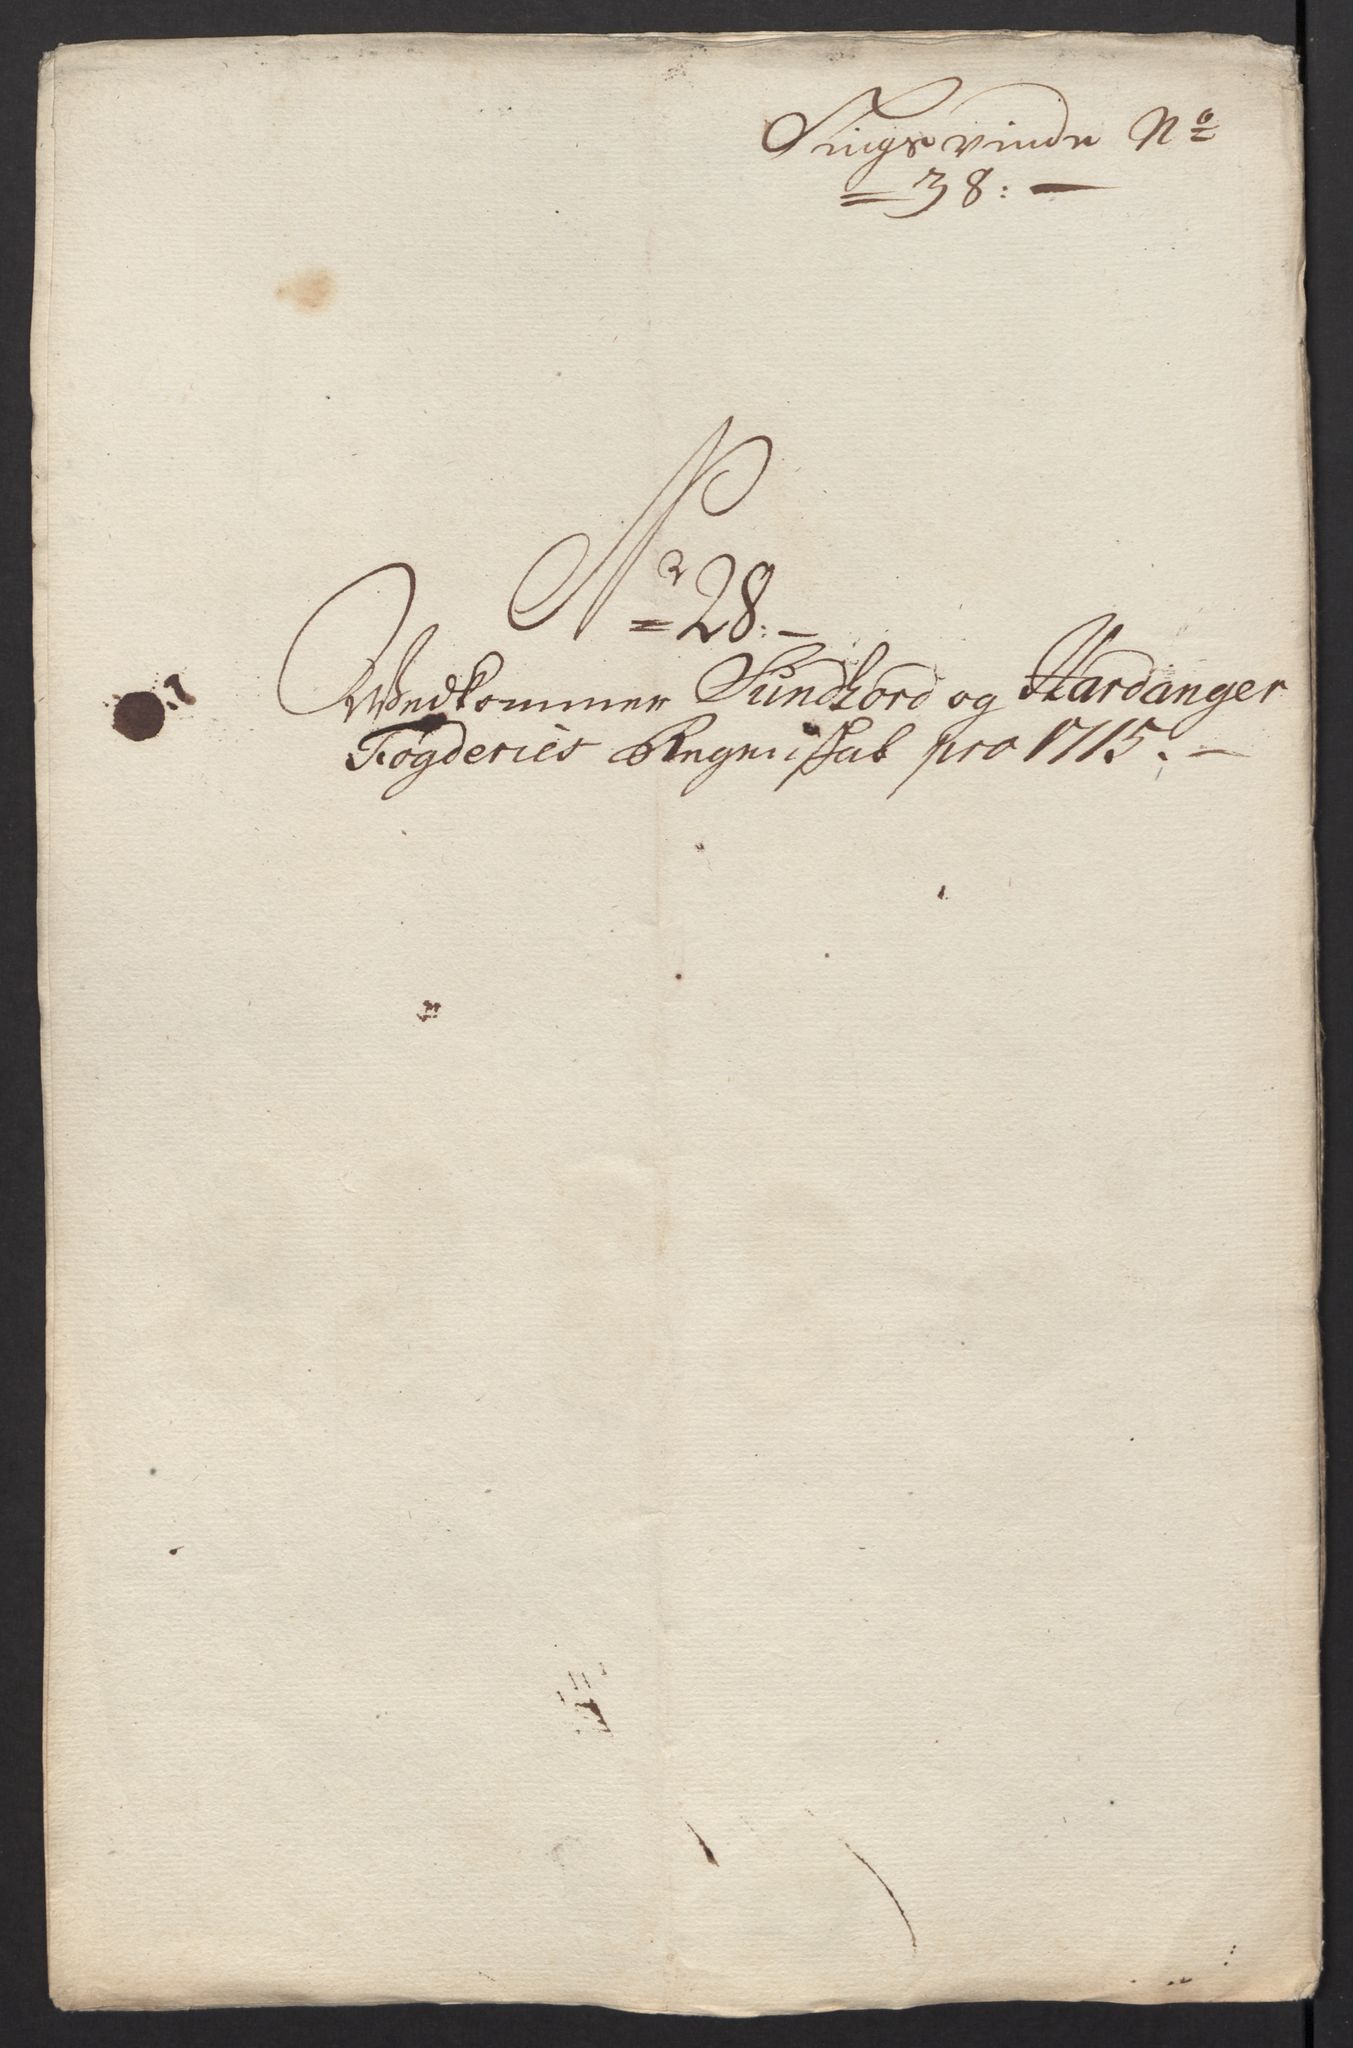 Tingsvinde No
38:
No 28:
Wedkommer Sundhord og Hardanger
Fogderies Regenskab pro 1715.